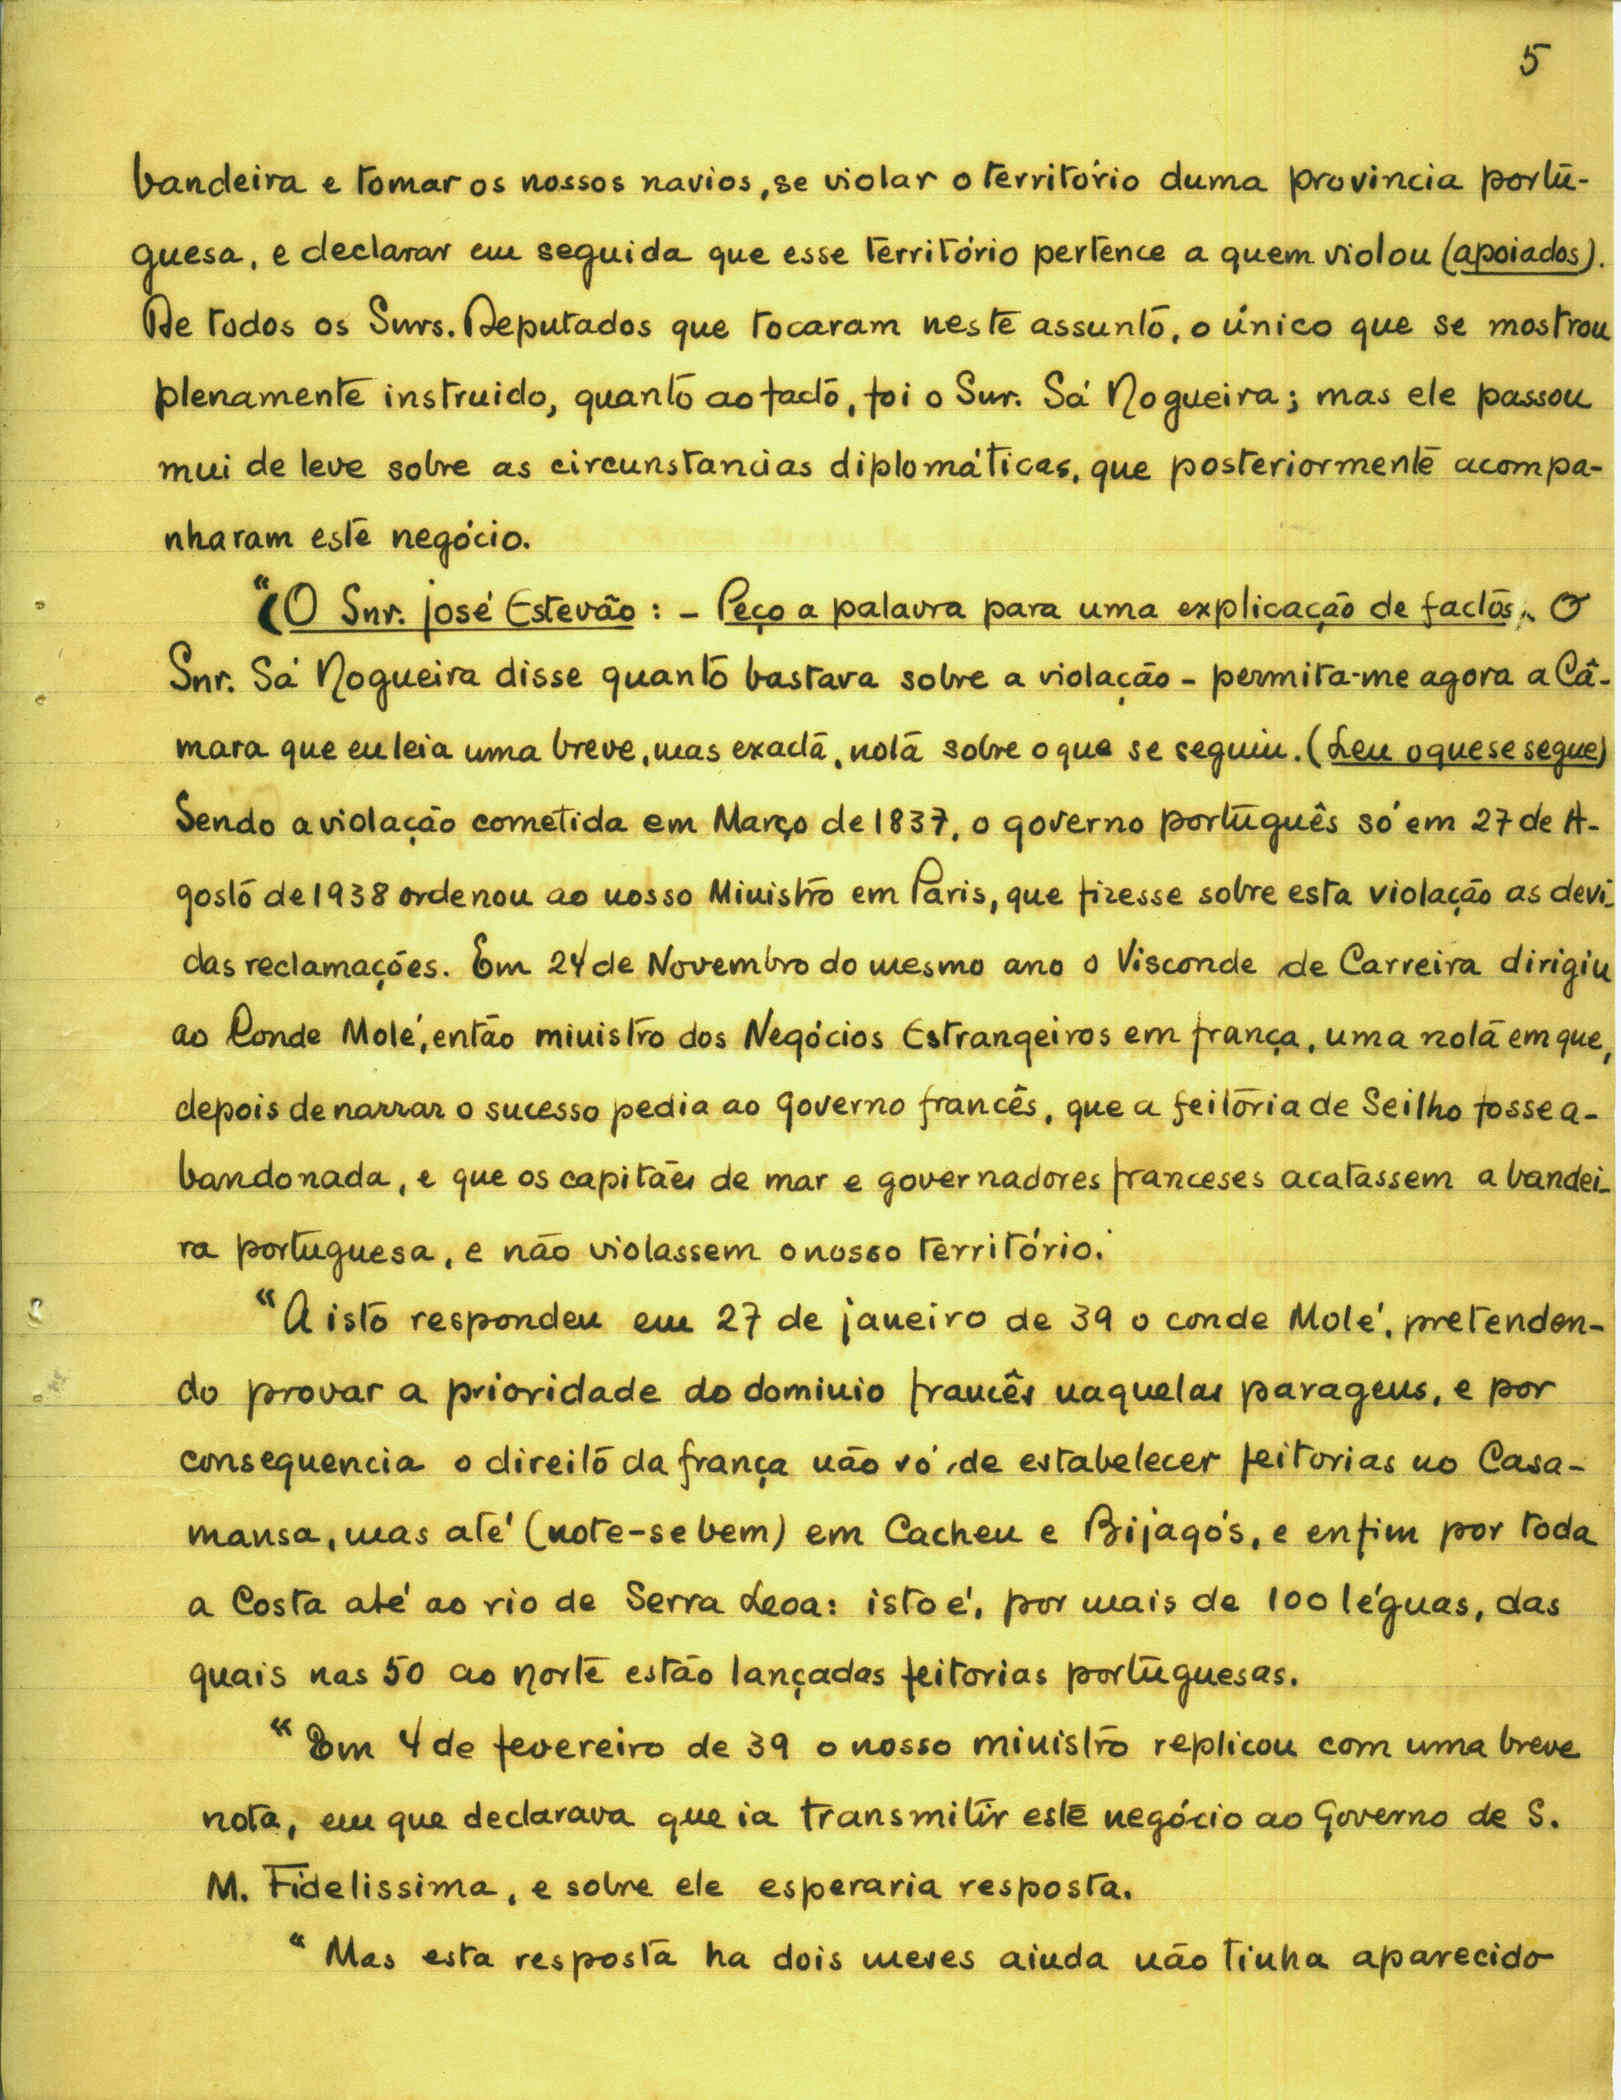 5
bandeira e tomar os nossos navios, se violar o território duma provincia portu-
guesa, e declarar em seguida que esse território pertence a quem violou (apoiados).
De todos os Snrs. Deputados que tocaram neste assunto, o único que se mostrou
plenamente instruido, quanto ao facto, foi o Snr. Sá Nogueira; mas ele passou
mui de leve sobre as circunstancias diplomáticas, que posteriormente acompa-
nharam este negócio.
"(O Snr. José Estevão: - Peço a palavra para uma explicação de factos). O
Snr. Sá Nogueira disse quanto bastava sobre a violação - permita-me agora a Câ-
mara que eu leia uma breve, mas exacta, nota sobre o que se seguiu. (Leu o que se segue)
Sendo a violação cometida em Março de 1837, o governo português só em 27 de A-
gosto de 1938 ordenou ao nosso Ministro em Paris, que fizesse sobre esta violação as devi-
das reclamações. Em 24 de Novembro do mesmo ano o Visconde de Carreira dirigiu
ao Conde Molé, então ministro dos Negócios Estrangeiros em frança, uma nota em que,
depois de narrar o sucesso pedia ao governo francês, que a feitoria de Seilho fosse a-
bandonada, e que os capitães de mar e governadores franceses acatassem a bandei-
ra portuguesa, e não violassem o nosso território.
"A isto respondeu em 27 de janeiro de 39 o conde Molé, pretenden-
do provar a prioridade do dominio francês naquelas paragens, e por
consequencia o direito da frança não só de estabelecer feitorias no Casa-
mansa, mas até (note-se bem) em Cacheu e Bijagós, e enfim por toda
a Costa até ao rio de Serra Leoa: isto é, por mais de 100 léguas, das
quais nas 50 ao norte estão lançadas feitorias portuguesas.
"Em 4 de fevereiro de 39 o nosso ministro replicou com uma breve
nota, em que declarava que ia transmitir este negócio ao Governo de S.
M. Fidelissima, e sobre ele esperaria resposta.
"Mas esta resposta ha dois meses ainda não tinha aparecido